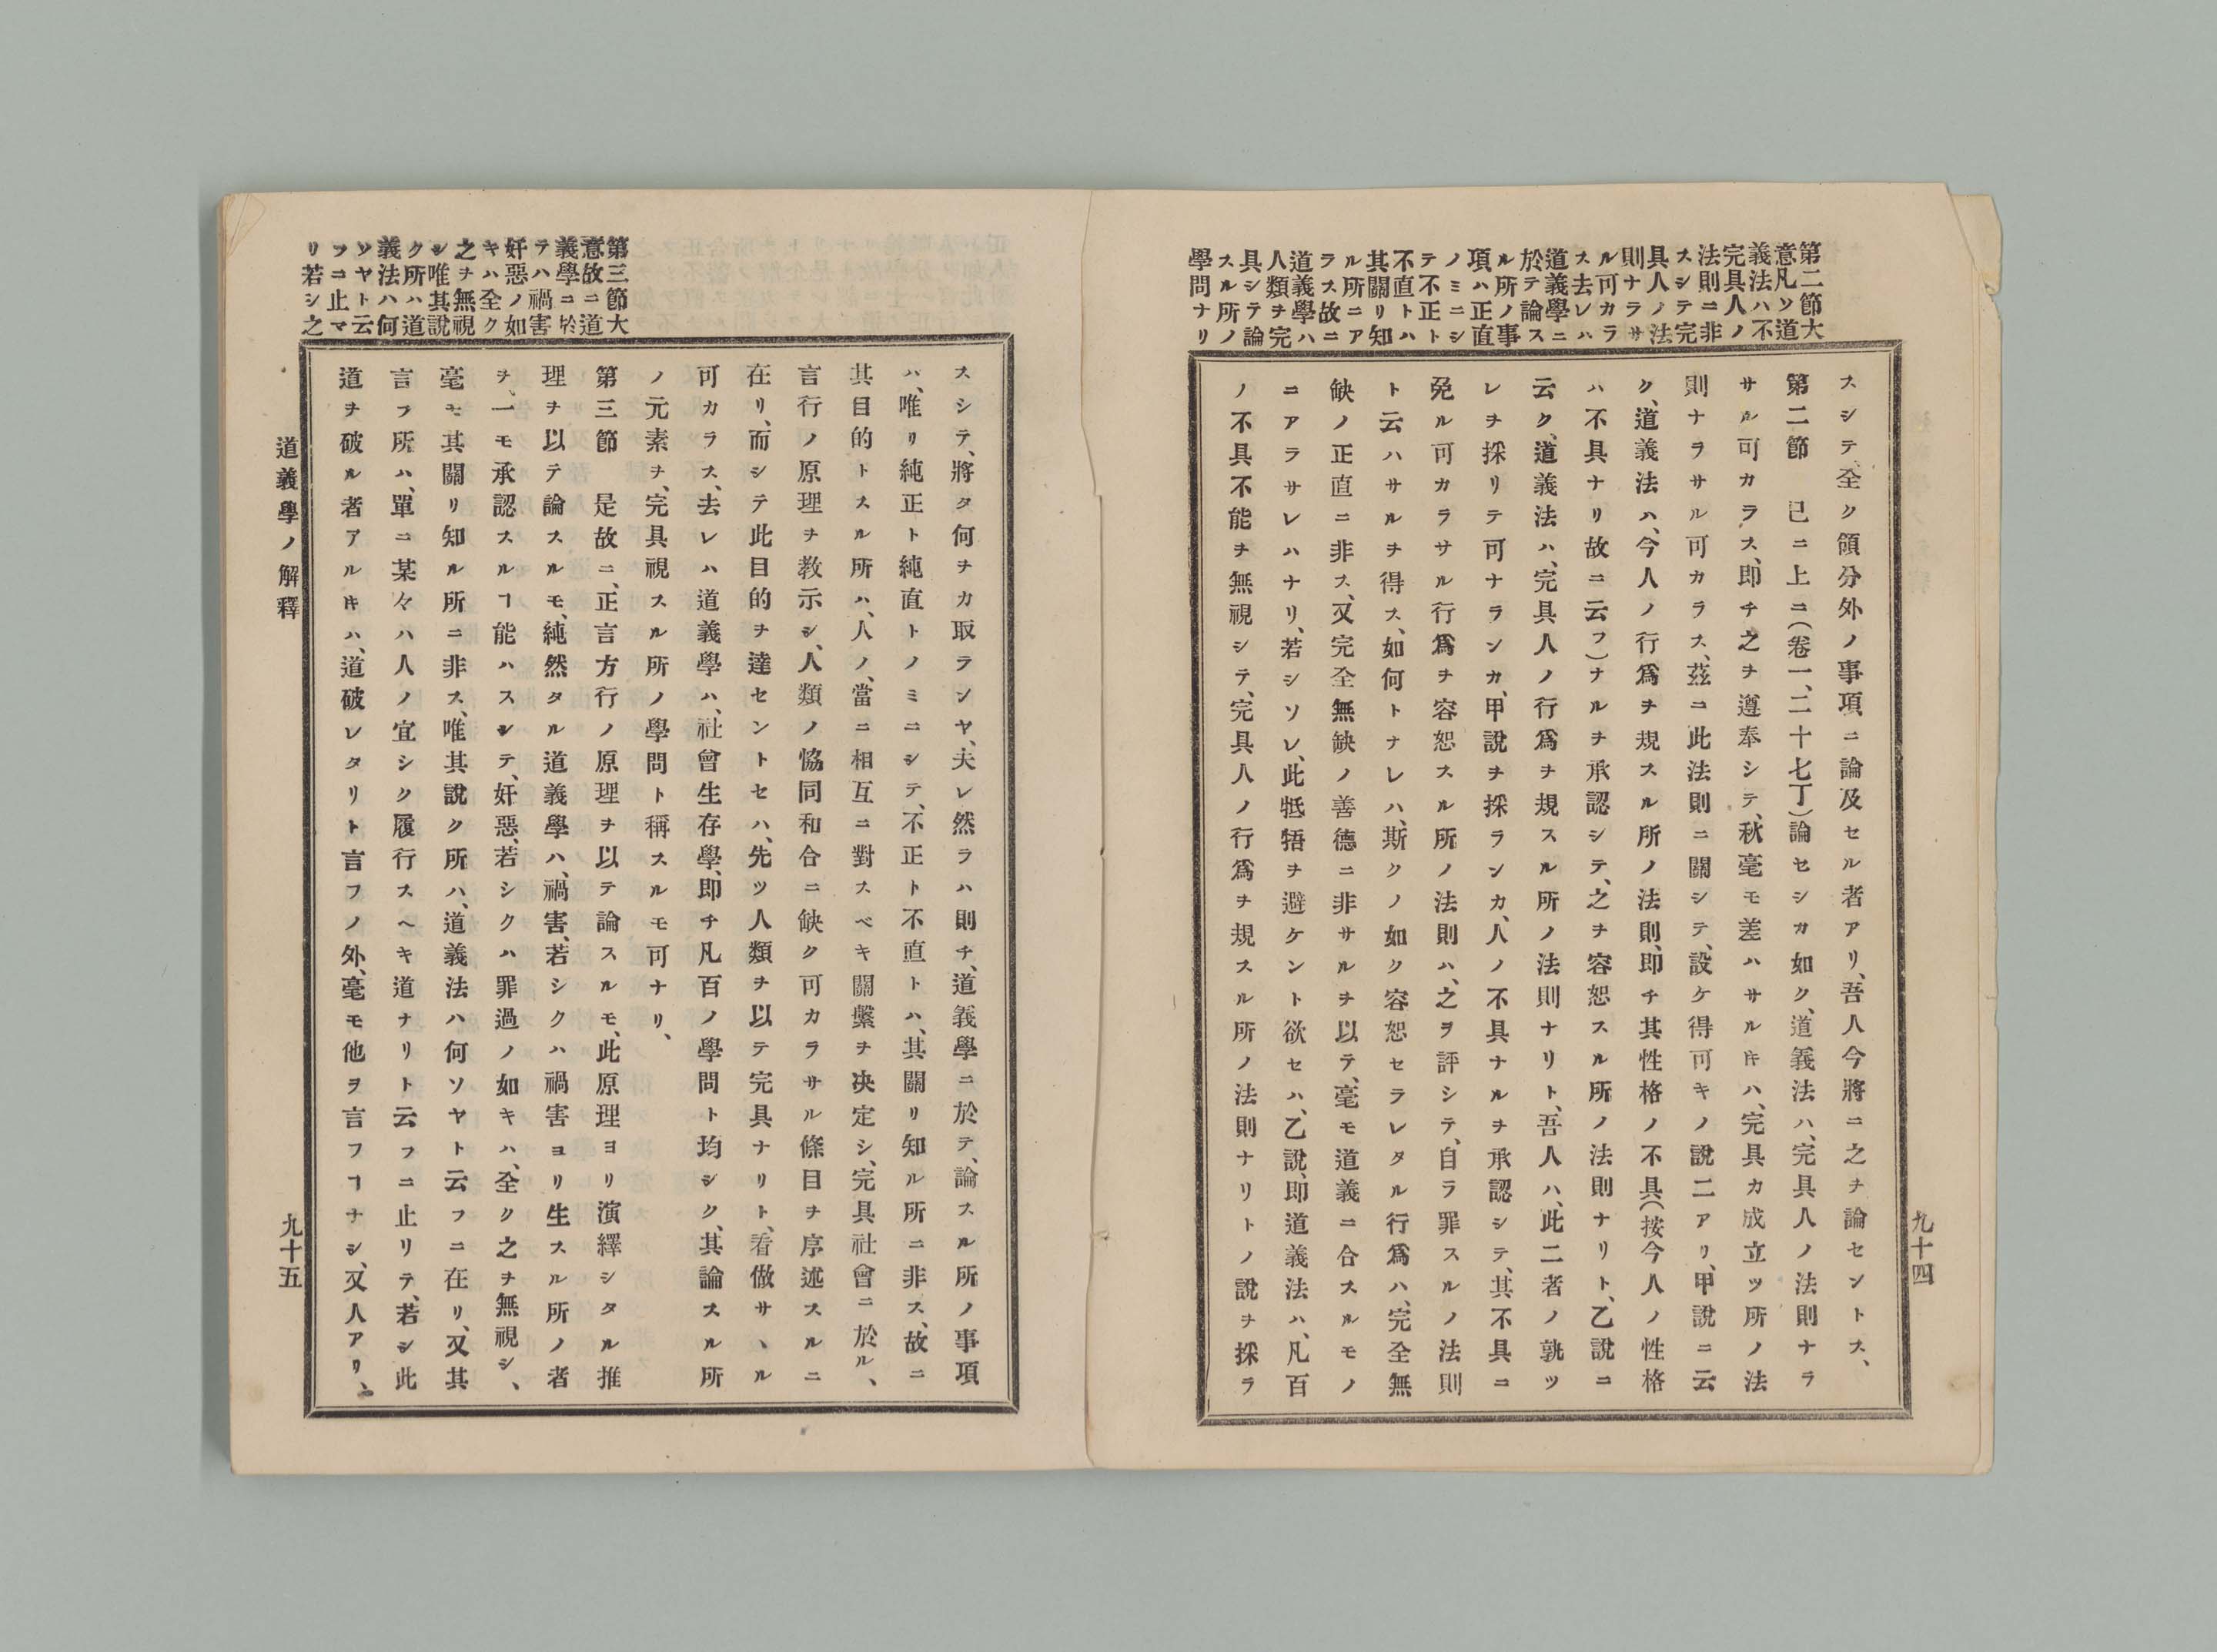 第二節大
意凡ソ道
義法ハ不
完具人ノ
法則ニ非
スシテ完
具人ノ法
則ナラサ
ル可カラ
ス去レハ
道義學ニ
於テ論ス
ル所ノ事
項ハ正直
ノミニシ
テ不正ト
不直トハ
其關リ知
ル所ニア
ラス故ニ
道義學ハ
人類ヲ完
具シテ論
スル所ノ
學問ナリ
スシテ、全ク領分外ノ事項ニ論及セル者アリ、吾人今將ニ之ヲ論セントス、
第二節 已ニ上ニ(卷一、二十七丁)論セシカ如ク、道義法ハ、完具人ノ法則ナラ
サル可カラス、即チ之ヲ遵奉シテ、秋毫モ差ハサルキハ、完具カ成立ツ所ノ法
則ナラサル可カラス、茲ニ此法則ニ關シテ、設ケ得可キノ說二アリ、甲說ニ云
ク、道義法ハ、今人ノ行爲ヲ規スル所ノ法則、即チ其性格ノ不具(按今人ノ性格
ハ不具ナリ故ニ云フ)ナルヲ承認シテ、之ヲ容恕スル所ノ法則ナリト、乙說ニ
云ク、道義法ハ、完具人ノ行爲ヲ規スル所ノ法則ナリト、吾人ハ、此二者ノ孰ツ
レヲ採リテ可ナランカ、甲說ヲ採ランカ、人ノ不具ナルヲ承認シテ、其不具ニ
免ル可カラサル行爲ヲ容恕スル所ノ法則ハ、之ヲ評シテ、自ラ罪スルノ法則
ト云ハサルヲ得ス、如何トナレハ、斯クノ如ク容恕セラレタル行爲ハ、完全無
缺ノ正直ニ非ス、又完全無缺ノ善德ニ非サルヲ以テ、毫モ道義ニ合スルモノ
ニアラサレハナリ、若シソレ、此牴牾ヲ避ケント欲セハ、乙說、即道義法ハ、凡百
ノ不具不能ヲ無視シテ、完具人ノ行爲ヲ規スル所ノ法則ナリトノ說ヲ採ラ
九十四
第三節大
意故ニ道
義學ニ於
テハ禍害
奸惡ノ如
キハ全ク
之ヲ無視
シ唯其說
ク所ハ道
義法ハ何
ソヤト云
フヿ止マ
リ若シ之
スシテ、將タ何ヲカ取ランヤ、夫レ然ラハ則チ、道義學ニ於テ、論スル所ノ事項
ハ、唯リ純正ト純直トノミニシテ、不正ト不直トハ、其關リ知ル所ニ非ス、故ニ
其目的トスル所ハ、人ノ、當ニ相互ニ對スベキ關繫ヲ決定シ、完具社會ニ於ル、
言行ノ原理ヲ教示シ、人類ノ恊同和合ニ缺ク可カラサル條目ヲ序述スルニ
在リ、而シテ此目的ヲ達セントセハ、先ツ人類ヲ以テ完具ナリト、看做サヽル
可カラス、去レハ道義學ハ、社會生存學、即チ凡百ノ學問ト均シク、其論スル所
ノ元素ヲ、完具視スル所ノ學問ト稱スルモ可ナリ、
第三節 是故ニ、正言方行ノ原理ヲ以テ論スルモ、此原理ヨリ演繹シタル推
理ヲ以テ論スルモ、純然タル道義學ハ、禍害、若シクハ禍害ヨリ生スル所ノ者
ヲ、一モ承認スルヿ能ハスシテ、奸惡、若シクハ罪過ノ如キハ、全ク之ヲ無視シ、
毫モ其關リ知ル所ニ非ス、唯其說ク所ハ、道義法ハ何ソヤト云フニ在リ、又其
言フ所ハ、單ニ某々ハ人ノ宜シク履行スヘキ道ナリト云フニ止リテ、若シ此
道ヲ破ル者アルキハ、道破レタリト言フノ外、毫モ他ヲ言フヿナシ、又人アリ、
道義學ノ解釋
九十五